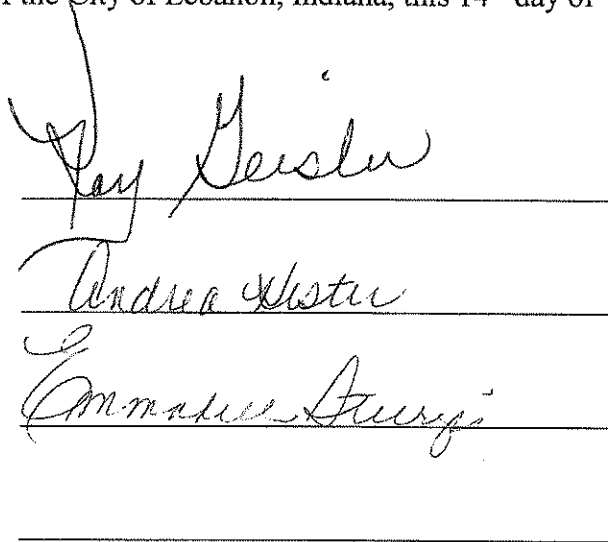 the City of Lebanon, Indiana, this 14th day of
Kay Geisler
Andrea Hester